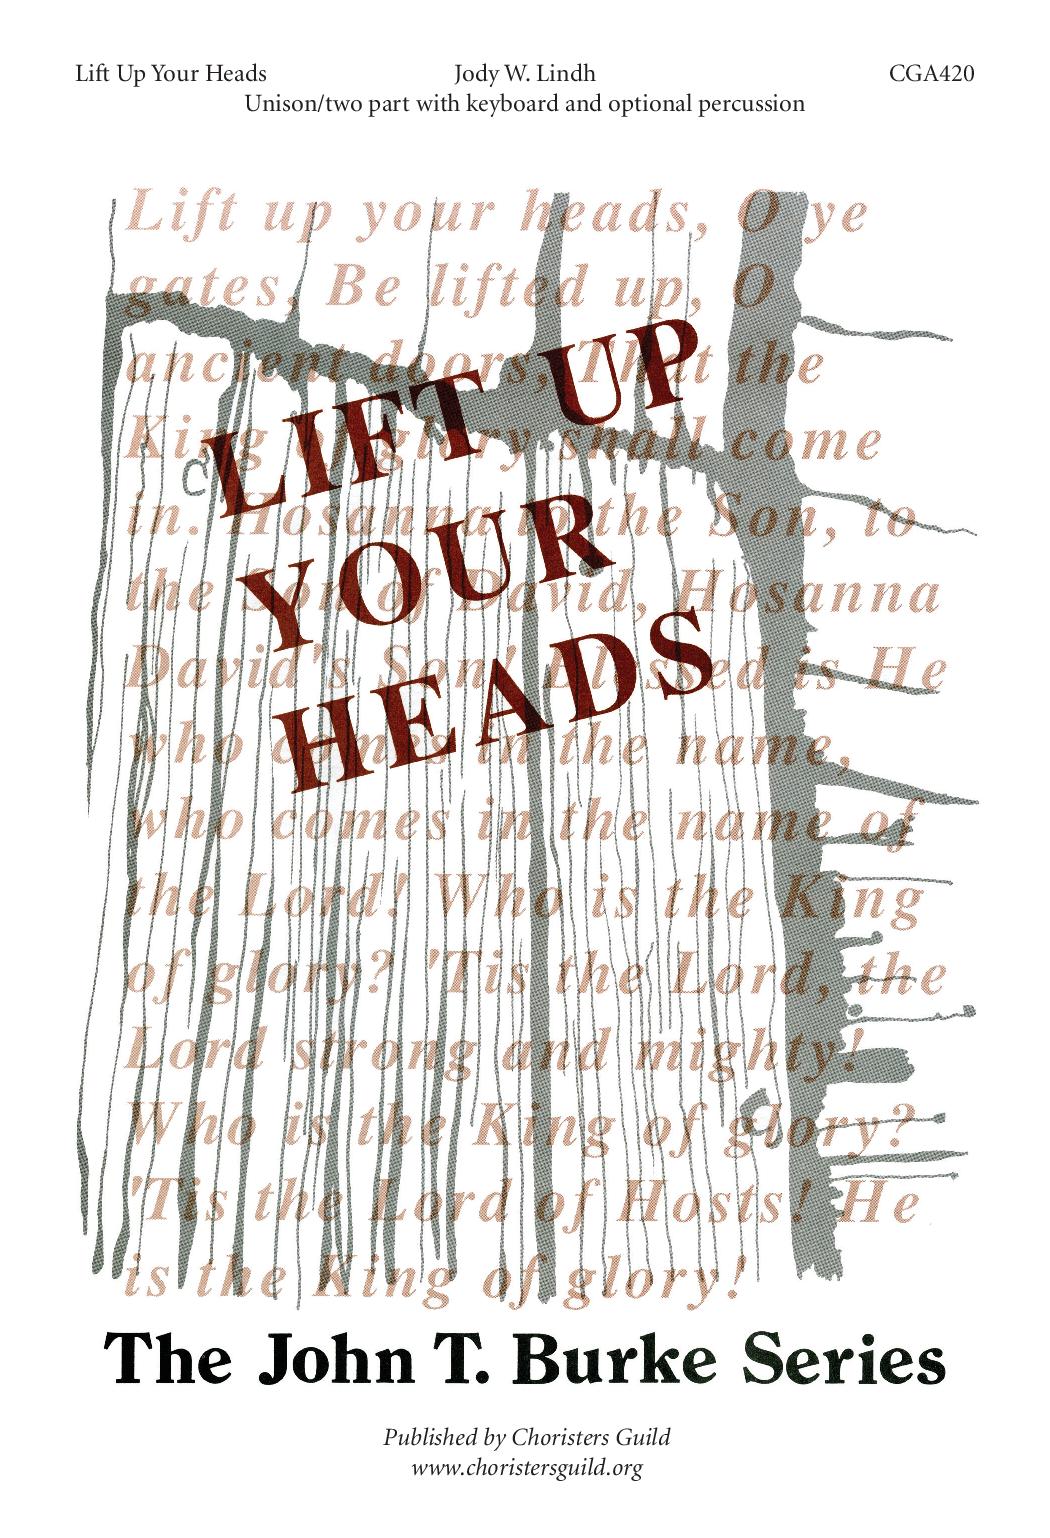 Lift Up Your Heads
Jody W. Lindh
CGA420
Unison/two part with keyboard and optional percussion
Lift up your heads, O ye
gates, Be lifted up, O
ancient doors, That the
King of glory shall come
in. Hosanna to the Son, to
the Son of David, Hosanna
David's Son! Blessed is He
who comes in the name,
who comes in the name of
the Lord! Who is the King
of glory? 'Tis the Lord, the
Lord strong and mighty!
Who is the King of glory?
'Tis the Lord of Hosts! He
is the King of glory!
LIFT UP
YOUR
HEADS
The John T. Burke Series
Published by Choristers Guild
www.choristersguild.org